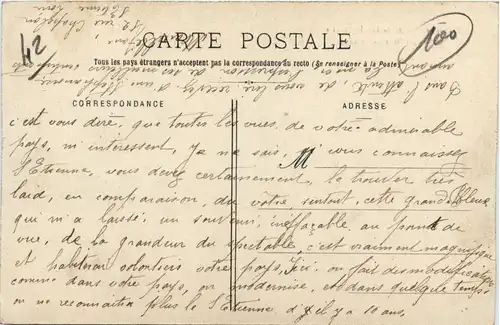 42
100
CARTE POSTALE
Tous les pays étrangers n'acceptent pas la correspondance au recto (Se renseigner à la Poste)
CORRESPONDANCE
ADRESSE
M
c'est vous dire, que toutes les vues de votre admirable
pays, m'intéressent, je ne sais si vous connaissez
St Etienne, vous devez certainement, le trouver très
laid, en comparaison, du votre surtout, cette grande bleue
qui m'a laissé, un souvenir, ineffaçable, au point de
vue, de la grandeur du spectable, c'est vraiment magnifique
et habiterai volontiers votre pays, Ici, on fait des modifications
comme dans votre pays, on modernise, et dans quelque temps
on ne reconnaitra plus le St Etienne d'il y a 10 ans,